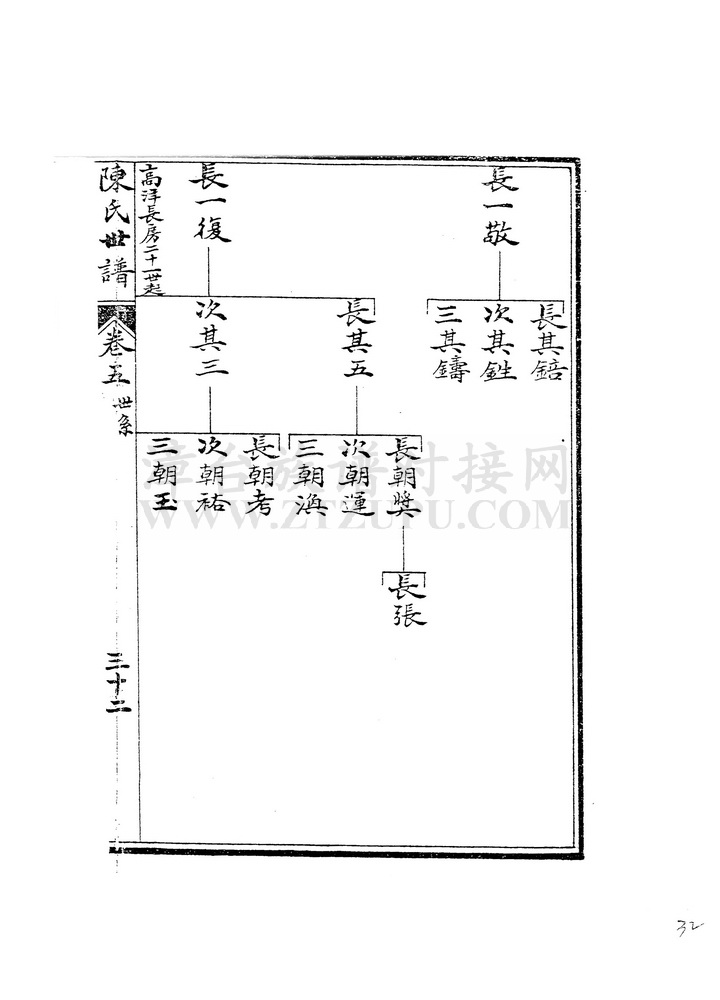 長一敬
長其錇
次其鉎
三其鑄
長一復
長其五
次其三
長朝獎
次朝運
三朝渙
長朝考
次朝祐
三朝玉
長張
高洋長房二十一世起
陳氏世譜
卷五 世系
三十二
漳台族谱对接网
WWW.ZTZUPU.COM
32